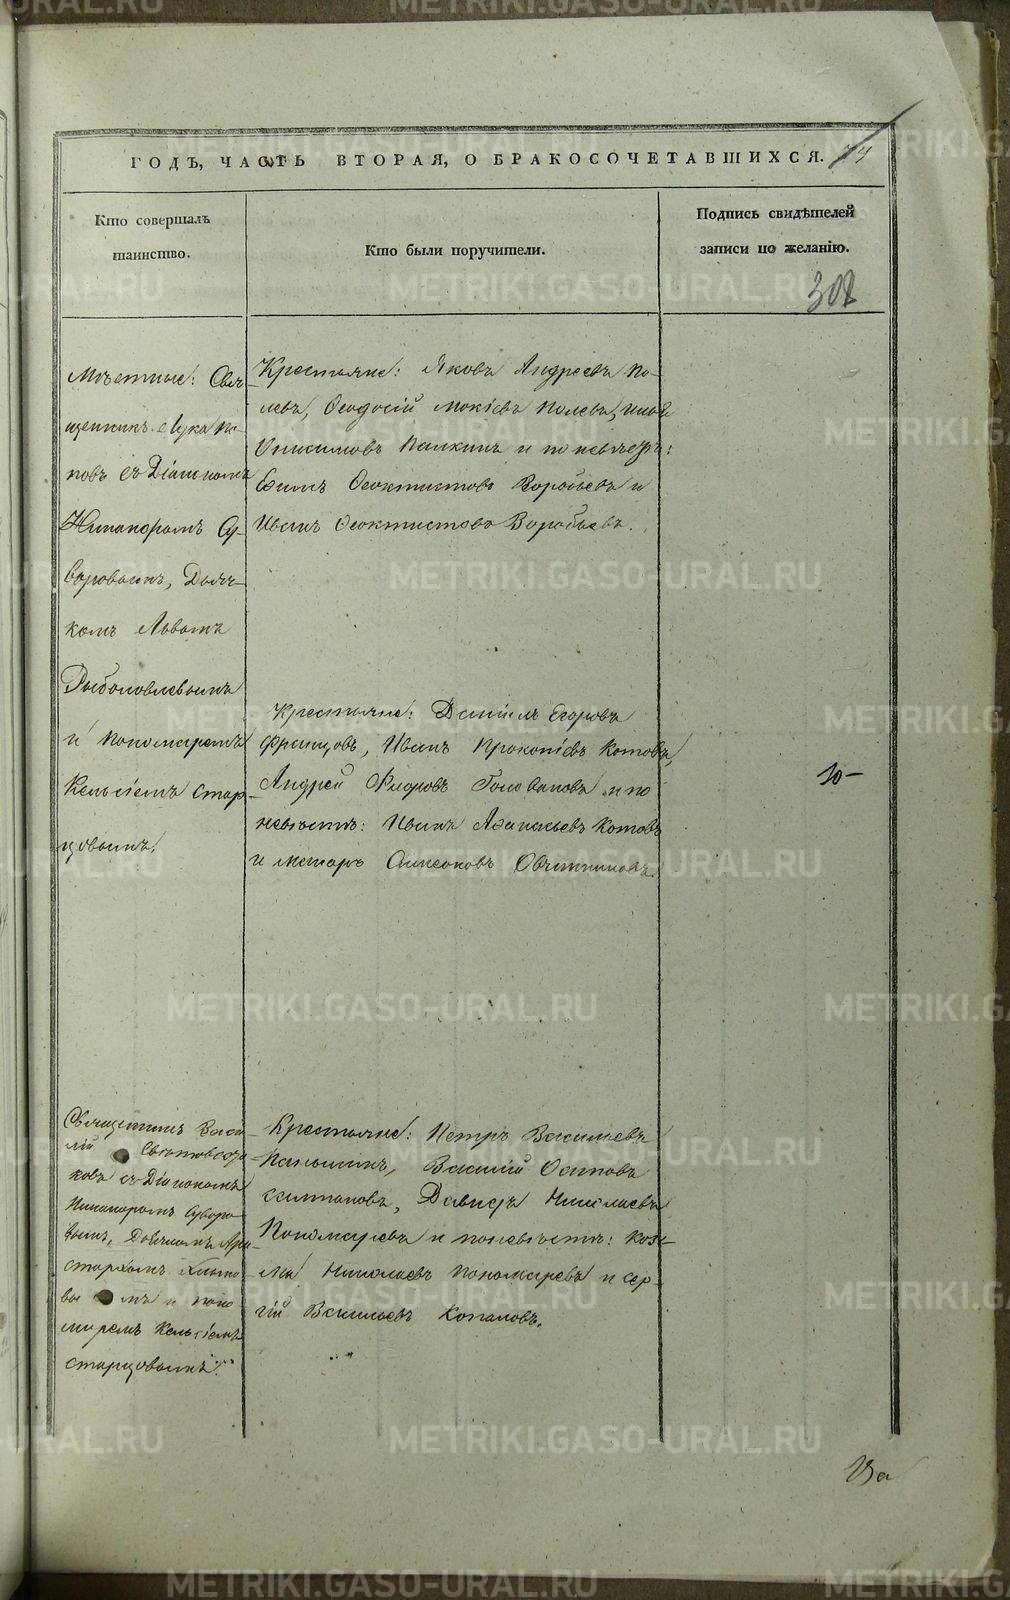 ГОДЪ, ЧАСТЬ ВТОРАЯ, О БРАКОСОЧЕТАВШИХСЯ.
Кто совершалъ
таинство.
Кто были поручители.
Подпись свидѣтелей
записи по желанію.
302
Мѣстные: Свя-
щенникъ Лука По-
повъ съ Діакономъ
Никандромъ Су-
воровымъ, Дьяч-
комъ Львомъ
Рыболовлевымъ
и пономаремъ
Кельсіемъ Стар-
цовымъ.
Крестьяне: Яковъ Андреевъ По-
левъ, Ѳеодосій Мокіевъ Полевъ,
Онисимовъ Палкинъ и по невѣстѣ:
Ѳеоктистовъ Воробьевъ и
Иванъ Ѳеоктистовъ Воробьевъ.
Крестьяне: Даніилъ Егоровъ
Францовъ, Иванъ Прокопіевъ Котовъ,
Андрей Ѳедоровъ Головановъ и по
невѣстѣ: Иванъ Аѳанасьевъ Котовъ
и Симеоновъ Овчинниковъ.
10-
Священникъ Васи-
лій
съ Діакономъ
Никандромъ Суворо-
вымъ, Дьячкомъ Ари-
стархомъ
и поно-
маремъ Кельсіемъ
Старцовымъ.
Крестьяне: Петръ Васильевъ
Паньшинъ, Василій Осиповъ
Давидъ Николаевъ
Пономаревъ и по невѣстѣ: Козь-
ма Николаевъ Пономаревъ и Сер-
гій Васильевъ Копаловъ.
METRIKI.GASO-URAL.RU